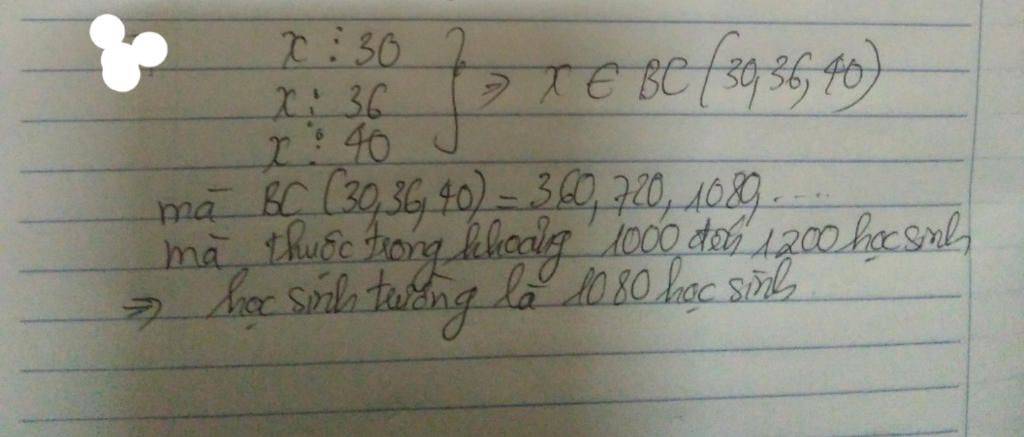 x ⋮ 30
x ⋮ 36
x ⋮ 40
} ⇒ x ∈ BC (30, 36, 40)
mà BC (30, 36, 40) = 360, 720, 1080, .....
mà thuộc trong khoảng 1000 đến 1200 học sinh
⇒ học sinh trường là 1080 học sinh